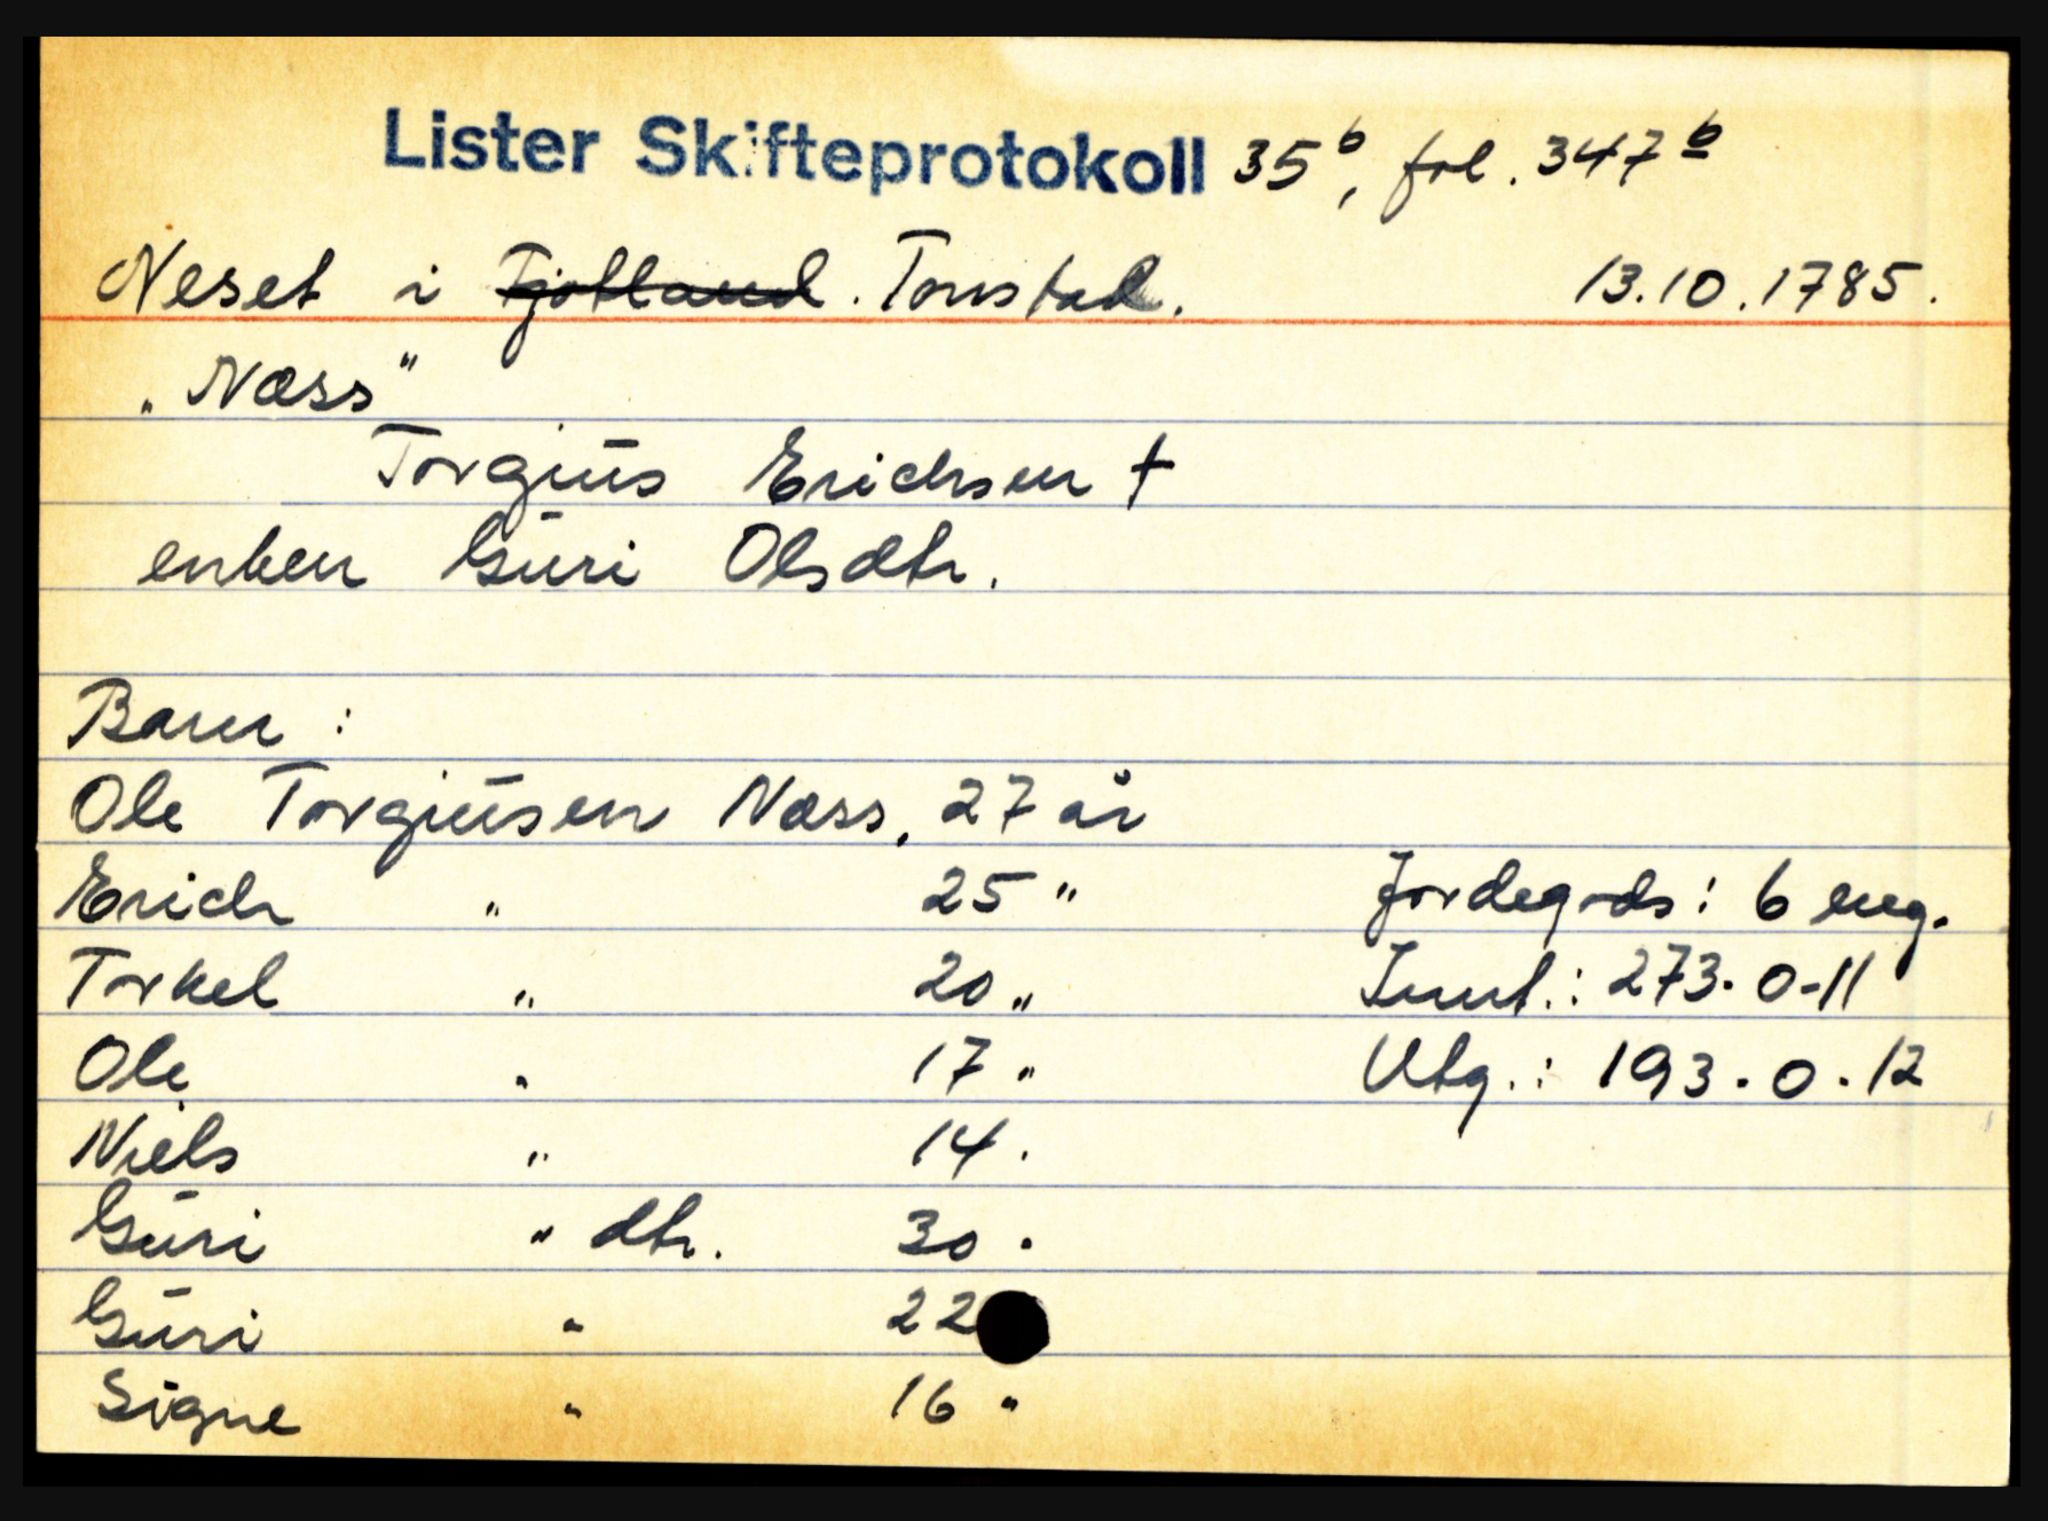 Lister Skifteprotokoll 35b, fol. 347b
Neset i Fjotland. Tonstad. 13.10.1785.
"Næss"
Torgius Erichsen †
enken Guri Olsdtr.
Barn:
Ole Torgiusen Næss, 27 år
Erich " 25 " Jordegods: 6 eng.
Torkel " 20 " Innt.: 273-0-11
Ole " 17 " Utg.: 193-0-12
Niels " 14 "
Guri " dtr. 30 "
Guri " 22
Signe " 16 "